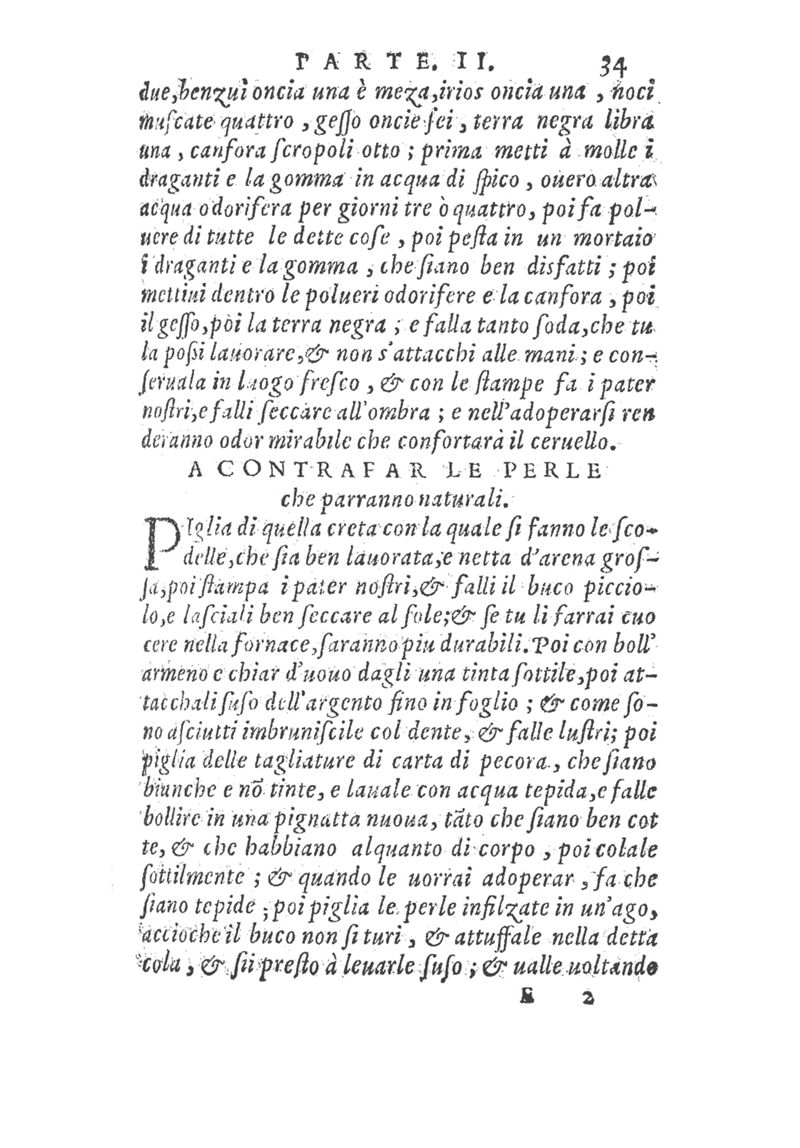 PARTE. II. 34
due, benzuì oncia una è meza, irios oncia una, noci
muſcate quattro, geſſo oncie ſei, terra negra libra
una, canfora ſcropoli otto; prima metti à molle i
draganti e la gomma in acqua di ſpico, ouero altra
acqua odorifera per giorni tre ò quattro, poi fa pol-
uere di tutte le dette coſe, poi peſta in un mortaio
i draganti e la gomma, che ſiano ben disfatti; poi
mettiui dentro le polueri odorifere e la canfora, poi
il geſſo, pòi la terra negra; e falla tanto ſoda, che tu
la poſsi lauorare, & non s'attacchi alle mani; e con-
ſeruala in luogo freſco, & con le ſtampe fa i pater
noſtri, e falli ſeccare all'ombra; e nell'adoperarſi ren
deranno odor mirabile che confortarà il ceruello.
A CONTRAFAR LE PERLE
che parranno naturali.
PIglia di quella creta con la quale ſi fanno le ſco-
delle, che ſia ben lauorata, e netta d'arena groſ-
ſa, poi ſtampa i pater noſtri, & falli il buco piccio-
lo, e laſciali ben ſeccare al ſole; & ſe tu li farrai cuo
cere nella fornace, ſaranno piu durabili. Poi con boll'
armeno e chiar d'uouo dagli una tinta ſottile, poi at-
tacchali ſuſo dell'argento fino in foglio; & come ſo-
no aſciutti imbruniſcile col dente, & falle luſtri; poi
piglia delle tagliature di carta di pecora, che ſiano
bianche e nõ tinte, e lauale con acqua tepida, e falle
bollire in una pignatta nuoua, tãto che ſiano ben cot
te, & che habbiano alquanto di corpo, poi colale
ſottilmente; & quando le uorrai adoperar, fa che
ſiano tepide; poi piglia le perle infilzate in un'ago,
accioche il buco non ſi turi, & attuffale nella detta
cola, & ſii preſto à leuarle ſuſo; & ualle uoltando
E 2